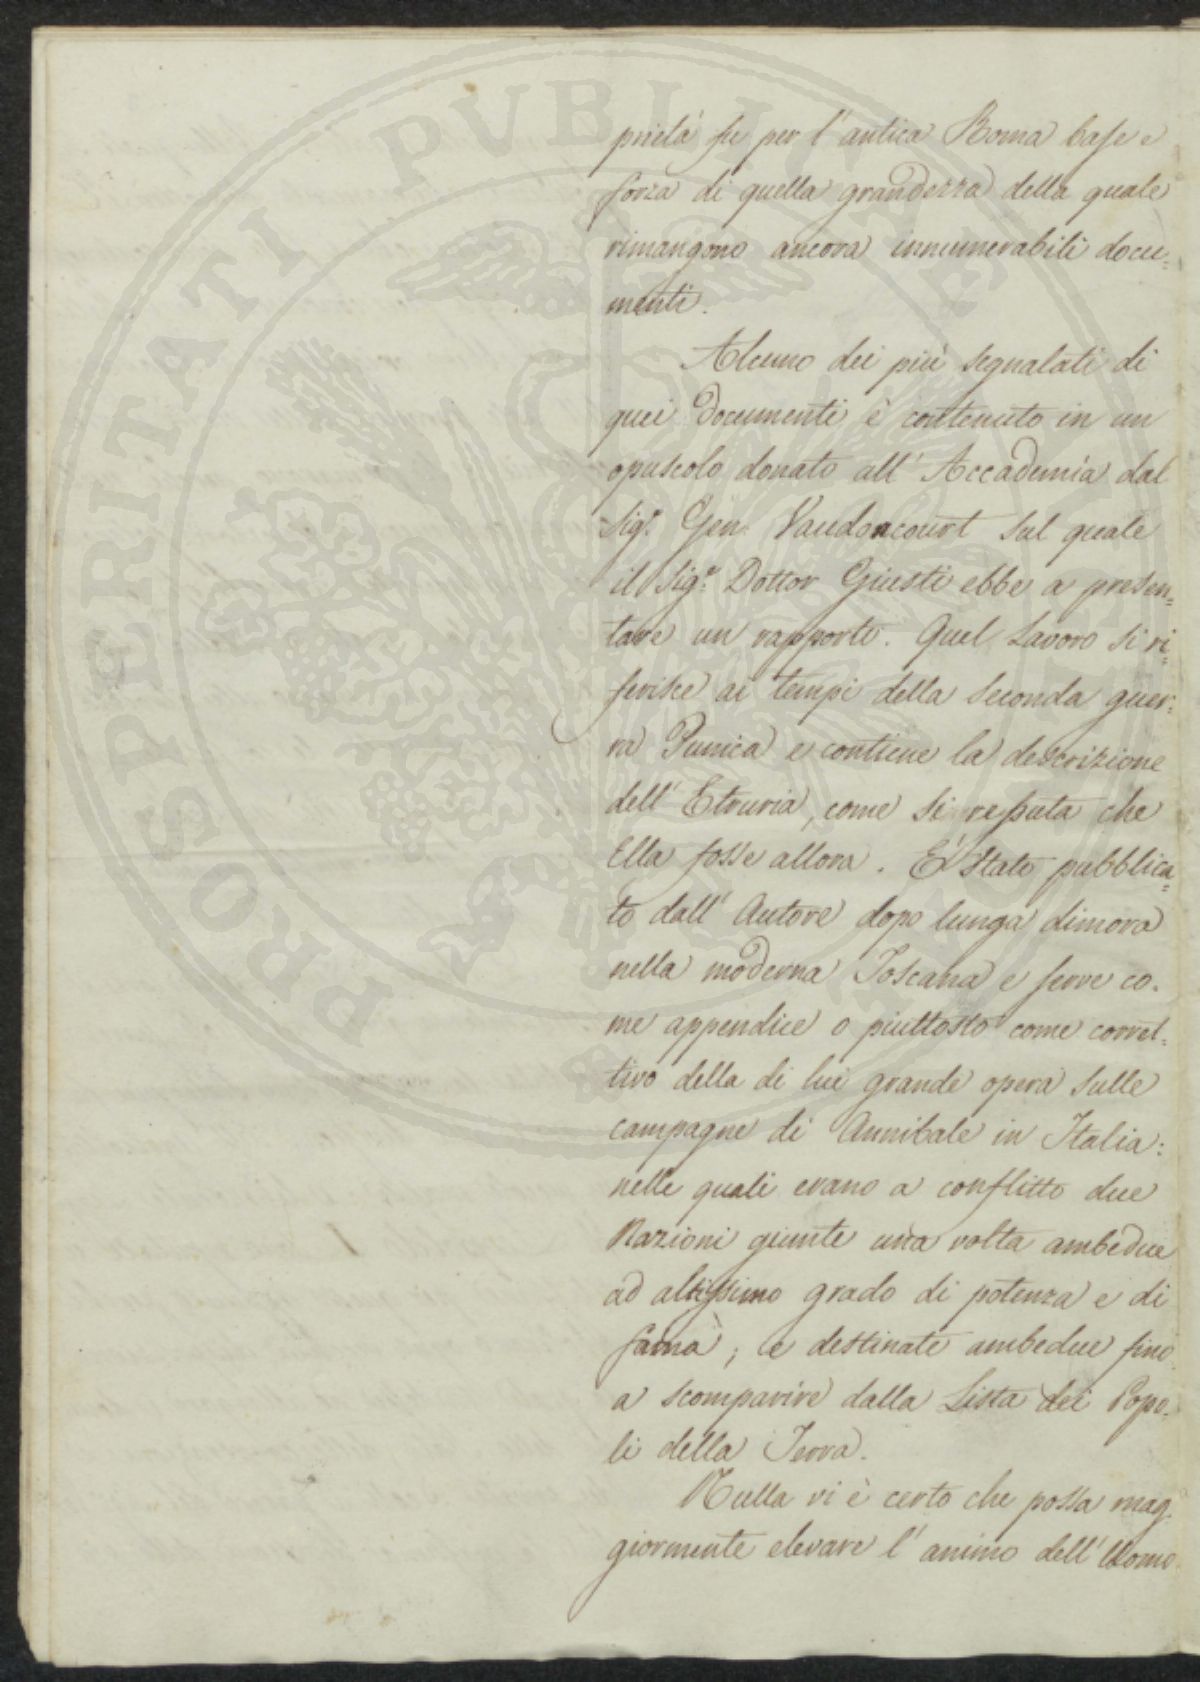 prietà fu per l'antica Roma base e
forza di quella grandezza della quale
rimangono ancora innumerabili docu=
menti.
Alcuno dei più segnalati di
quei documenti è contenuto in un
opuscolo donato all'Accademia dal
Sig.r Gen. Vaudoncourt sul quale
il Sig.r Dottor Giusti ebbe a presen=
tare un rapporto. Quel Lavoro si ri=
ferisce ai tempi della seconda guer=
ra Punica e contiene la descrizione
dell'Etruria, come si reputa che
Ella fosse allora. E' stato pubblica=
to dall'Autore dopo lunga dimora
nella moderna Toscana e serve co.
me appendice o piuttosto come corret=
tivo della di lui grande opera sulle
campagne di Annibale in Italia:
nelle quali erano a conflitto due
Nazioni giunte una volta ambedue
ad altissimo grado di potenza e di
fama; e destinate ambedue fino
a scomparire dalla Lista dei Popo.
li della Terra.
Nulla vi è certo che possa mag.
giormente elevare l'animo dell'Uomo
PROSPERITATI PVBLICAE